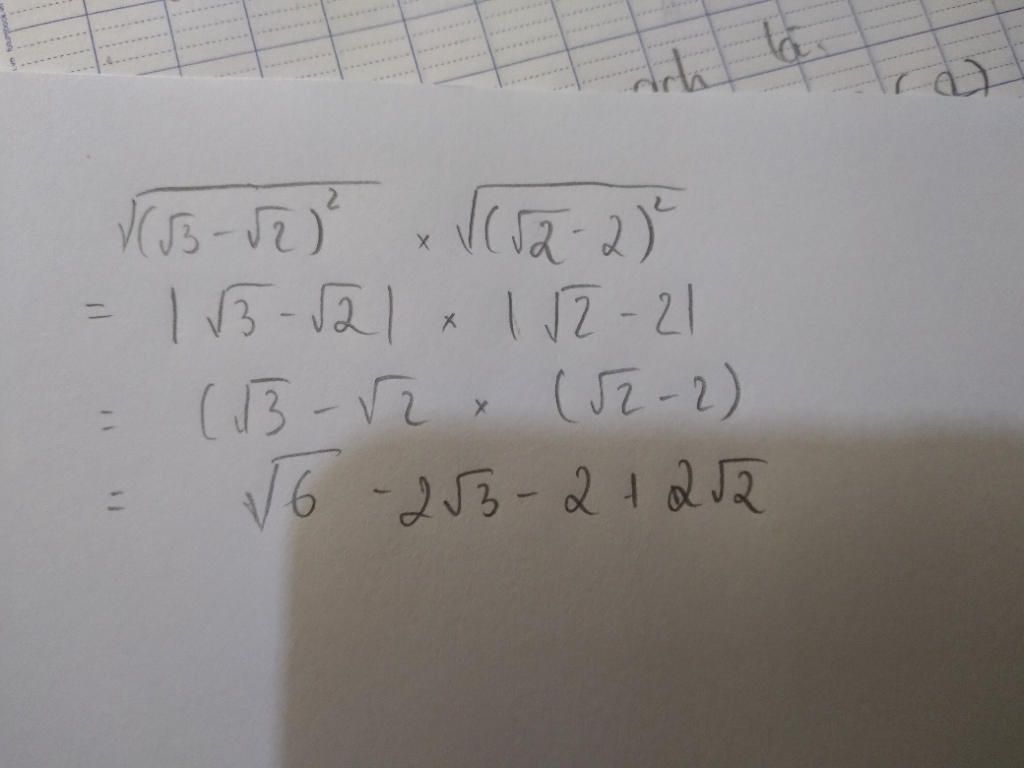 là.
(a)
√(√3 - √2)² × √(√2 - 2)²
= |√3 - √2| × |√2 - 2|
= (√3 - √2 × (√2 - 2)
= √6 - 2√3 - 2 + 2√2